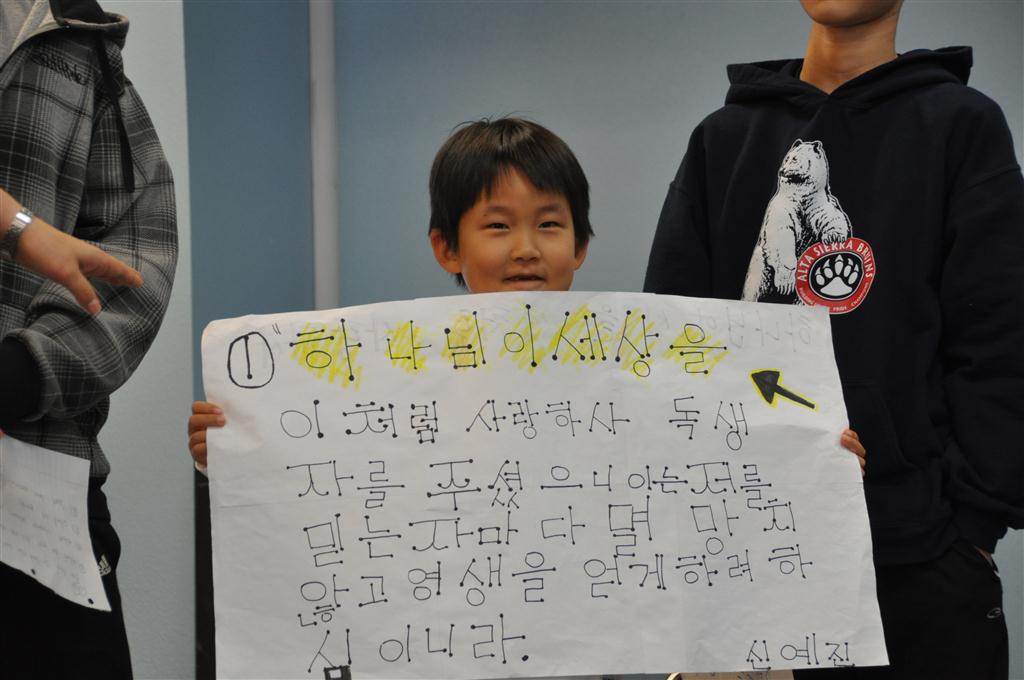 ① "하나님이세상을
이처럼 사랑하사 독생
자를 주셨으니 이는저를
믿는자마다 멸망치
않고영생을 얻게하려하
심이니라.
신예진
ALTA SIERRA BRUINS